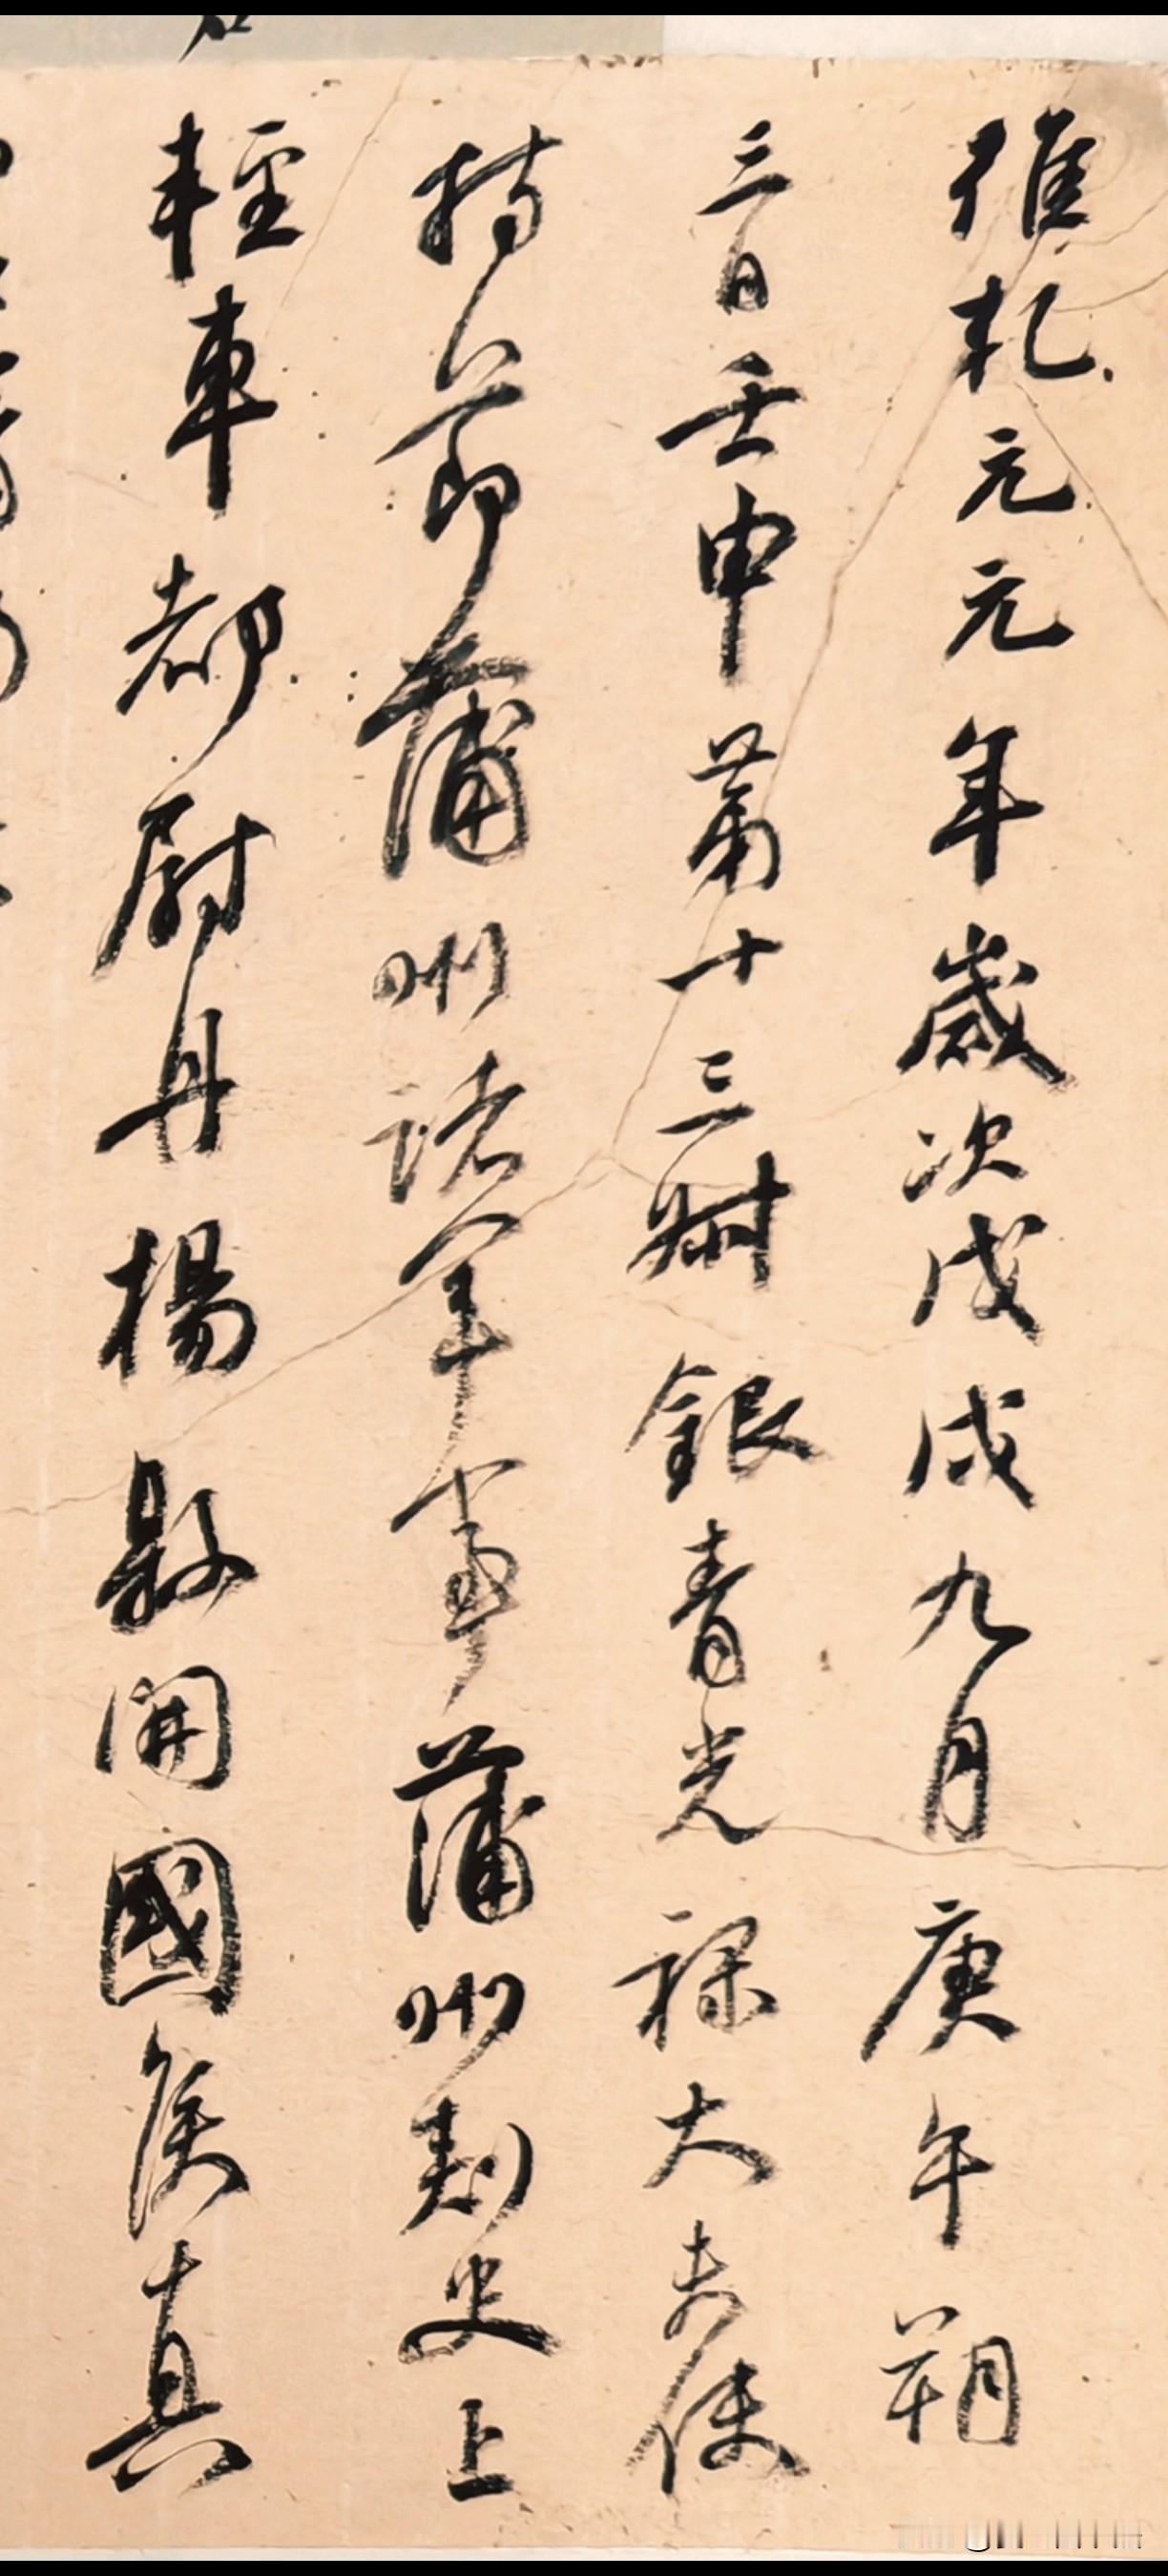 維乾元元年歲次戊戌九月庚午朔
三日壬申第十三叔銀青光祿大夫使
持節蒲州諸軍事蒲州刺史上
輕車都尉丹楊縣開國侯真